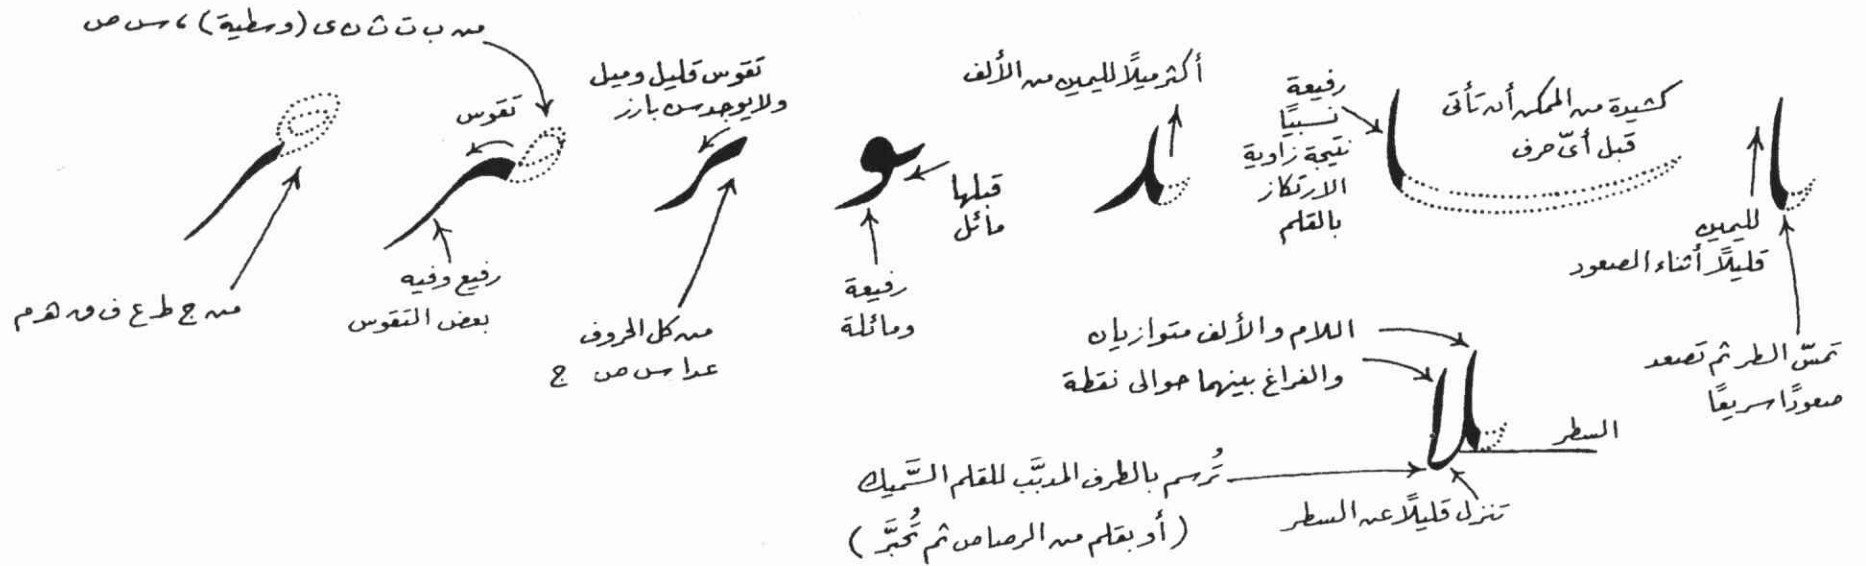 كشيدة من الممكن أن تأتى
قبل أىّ حرف
لليمين
قليلاً أثناء الصعود
تمسّ الطر ثم تصعد
صعودًا سريعًا
رفيعة
نسبيًا
نتيجة زاوية
الارتكاز
بالقلم
أكثر ميلاً لليمين من الألف
قبلها
مائل
رفيعة
ومائلة
تقوس قليل وميل
ولا يوجد سن بارز
من كل الحروف
عدا س ص ج
من ب ت ث ن ى (وسطية) ، س ص
تقوس
رفيع وفيه
بعض التقوس
من ج ط ع ف ق ه م
اللام والألف متوازيان
والفراغ بينهما حوالى نقطة
السطر
تُرسم بالطرف المدبَّب للقلم السَّميك
(أو بقلم من الرصاص ثم تُحبَّر)
تنزل قليلاً عن السطر